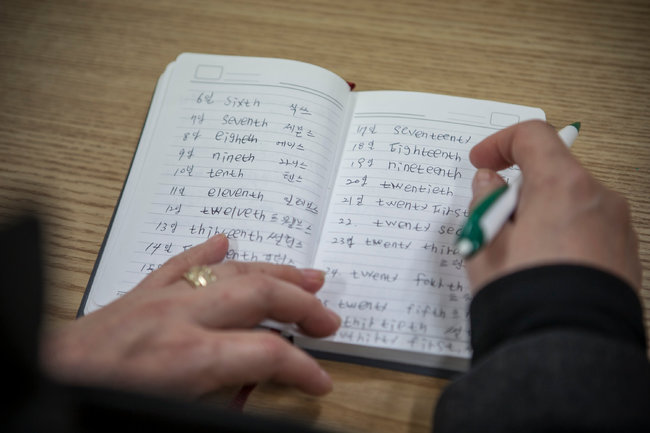 6일 sixth 식쓰
7일 seventh 세븐스
8일 eighth 에이스
9일 nineth 나인스
10일 tenth 텐스
11일 eleventh
12일 twelveth
13일 thirteenth
14일
15일
17일 seventeenth
18일 Eighteenth
19일 nineteenth
20일 twentieth
21일 twenty First
22. twenty sec
23일 twenty third
24. twenty fourth
twenty fifth
thirtieth
thirty first.